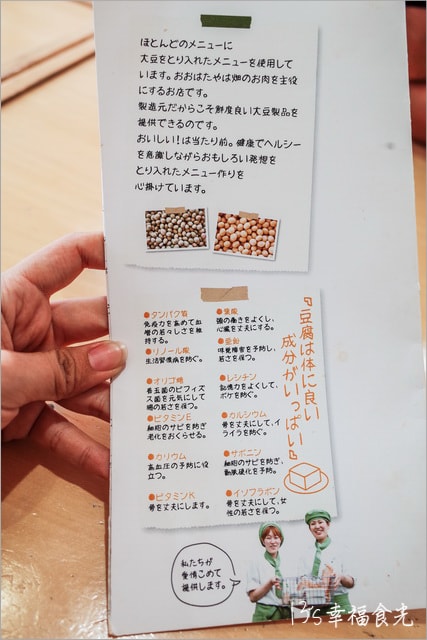 ほとんどのメニューに
大豆をとり入れたメニューを使用して
います。おおはたやは畑のお肉を主役
にするお店です。
製造元だからこそ鮮度良い大豆製品を
提供できるのです。
おいしい!は当たり前。健康でヘルシー
を意識しながらおもしろい発想を
とり入れたメニュー作りを
心掛けています。
『豆腐は体に良い
成分がいっぱい』
●タンパク質
免疫力を高めて血
管の若々しさを維
持する。
●リノール酸
生活習慣病を防ぐ。
●オリゴ糖
善玉菌のビフィズ
ス菌を元気にして
腸の若さを保つ。
●ビタミンE
細胞のサビを防ぎ
老化をおくらせる。
●カリウム
高血圧の予防に役
立つ。
●ビタミンK
骨を丈夫にします。
●葉酸
頭の働きをよくし、
心臓を丈夫にする。
●亜鉛
味覚障害を予防し、
若さを保つ。
●レシチン
記憶力をよくして、
ボケを防ぐ。
●カルシウム
骨を丈夫にして、イ
ライラを防ぐ。
●サポニン
細胞のサビを防ぎ、
動脈硬化を予防。
●イソフラボン
骨を丈夫にして、女
性の若さを保つ。
私たちが
愛情こめて
提供します。
幸福食光